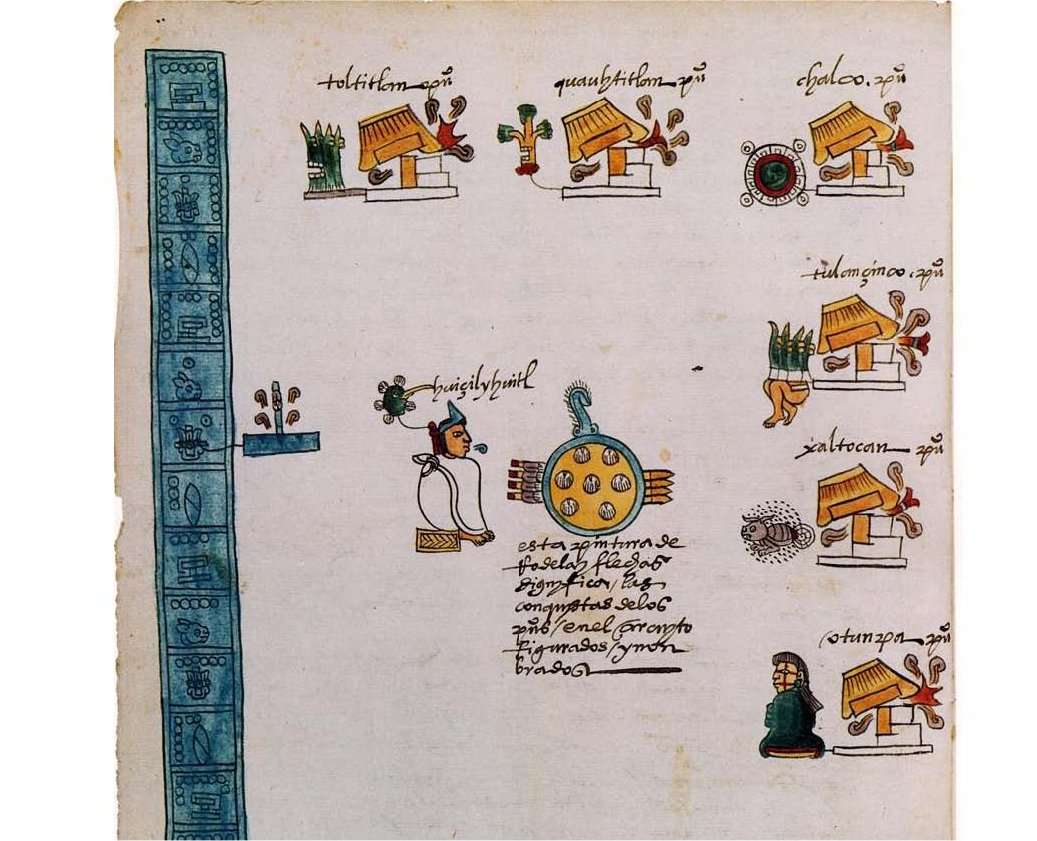 toltitlan. pu͞o
quauhtitlan. pu͞o
chalco. pu͞o
tulançinco. pu͞o
huiçilyhuitl
xaltocan. pu͞o
esta pintura de
rodela y flechas
significa / las
conquistas de los
pu͞os / en el circuyto
figurados / y non
brados
otunpa. pu͞o